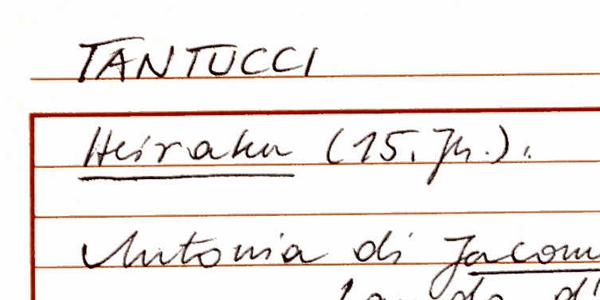 TANTUCCI
Heiraten (15. Jh.).
Antonia di Jacom